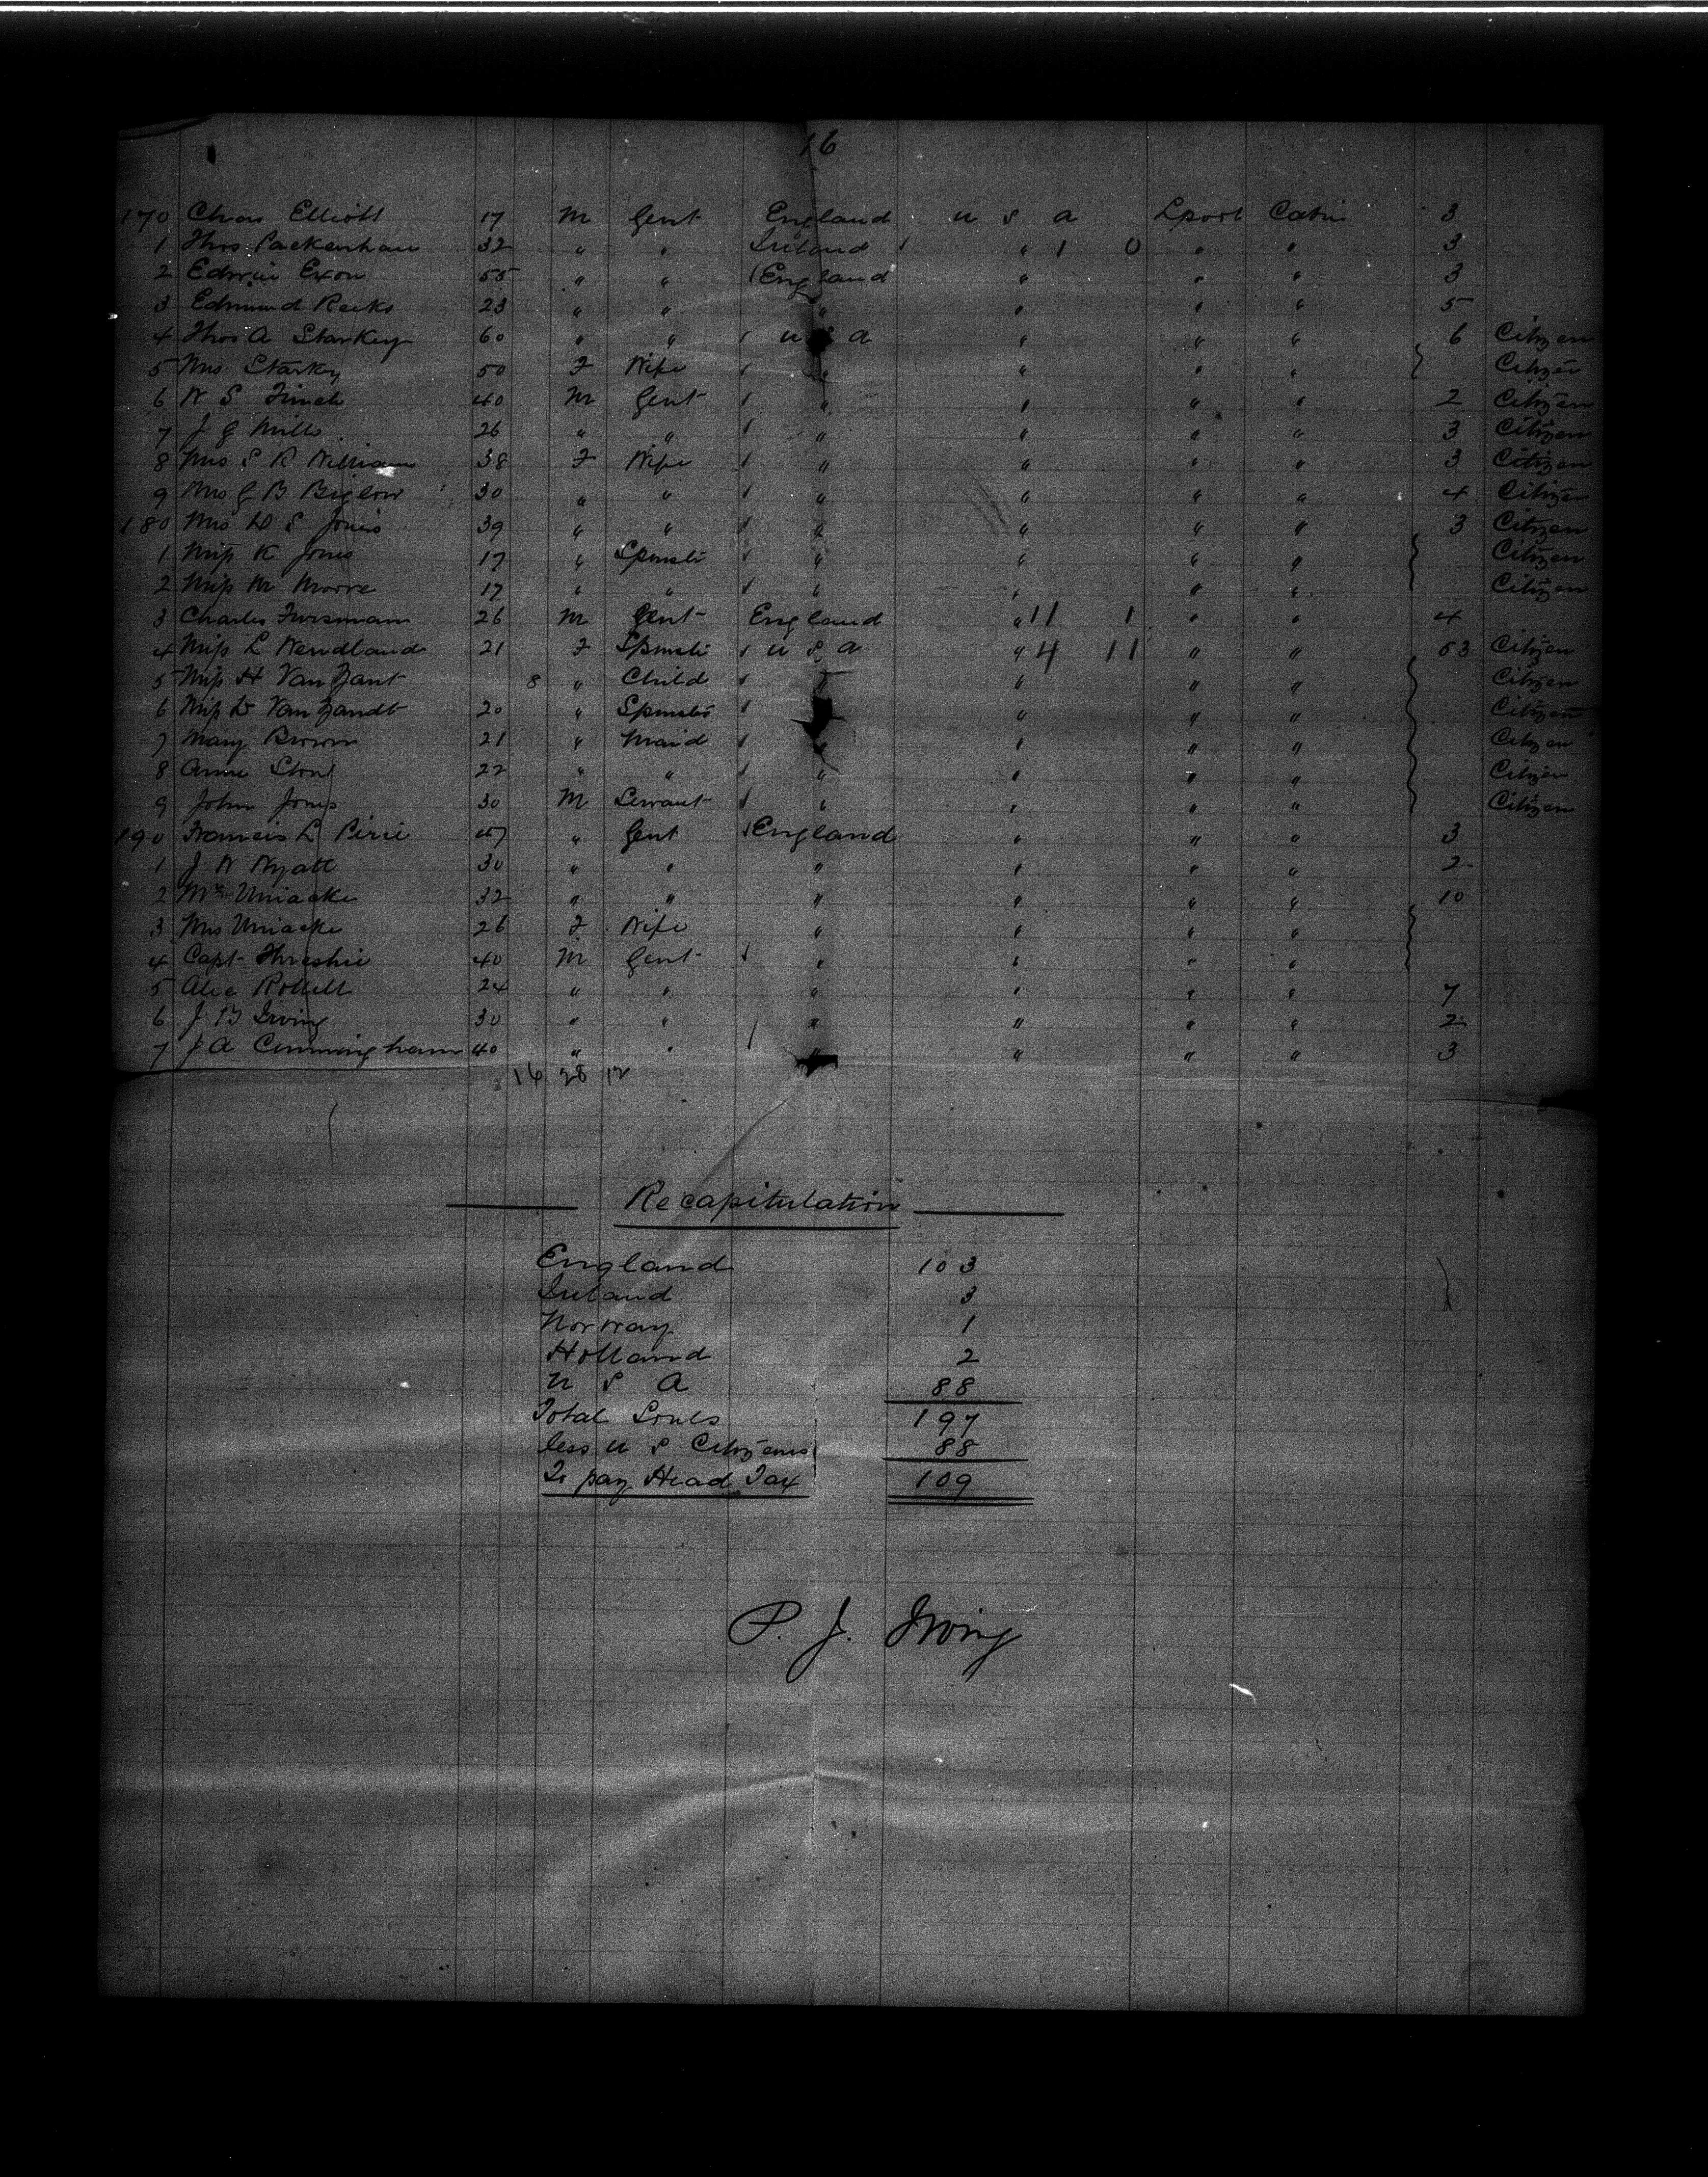 16
170 Chas Elliott 17 M Gent England U S A Lpool Cabin 3
1 Thos Packenham 32 " " Ireland " 1 0 " " 3
2 Edwin Exon 55 " " England " " " 3
3 Edmund Reeks 23 " " " " " " 5
4 Thos A Starkey 60 " " U S A " " " 6 Citizen
5 Mrs Starky 50 F Wife " " " " Citizen
6 W S Finch 40 M Gent " " " " 2 Citizen
7 J G Mills 26 " " " " " " 3 Citizen
8 Mrs S R Williams 38 F Wife " " " " 3 Citizen
9 Mrs G B Biglow 30 " " " " " " 4 Citizen
180 Mrs D S Jones 39 " " " " " " 3 Citizen
1 Miss K Jones 17 " " " " " Citizen
2 Miss M Moore 17 " " " " " " Citizen
3 Charles Fursman 26 M Gent England " 11 1 " " 4
4 Miss L Wendland 21 F U S A " 4 11 " " 53 Citizen
5 Miss H Van Zant 8 " Child " " " " Citizen
6 Miss D Van Zandt 20 " " " " " Citizen
7 Mary Brown 21 " Maid " " " " Citizen
8 Annie 22 " " " " " " Citizen
9 John Jones 30 M Servant " " " " Citizen
190 Francis L Pirie 47 " Gent England " " " 3
1 J W Wyatt 30 " " " " " " 2
2 Mr Uniacke 32 " " " " " " 10
3 Mrs Uniacke 26 F Wife " " " "
4 Capt Threshie 40 M Gent " " " "
5 Alec 24 " " " " " " 7
6 J. B Irving 30 " " " " " " 2
7 J A Cunningham 40 " " " " " " 3
16 28 12
Recapitulation
England 103
Ireland 3
Norway 1
Holland 2
U S A 88
Total Souls 197
less U S Citizens 88
To pay Head Tax 109
P. J. Irving